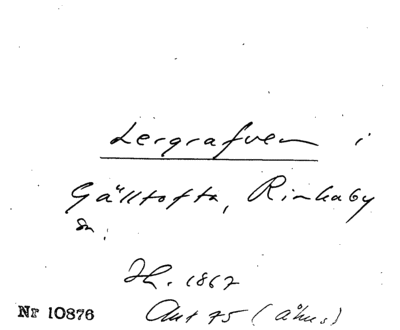 Lergrafven i
Gälltofta, Rinkaby
sn.
H. 1867
Ant 75 (Åhus)
Nr 10876